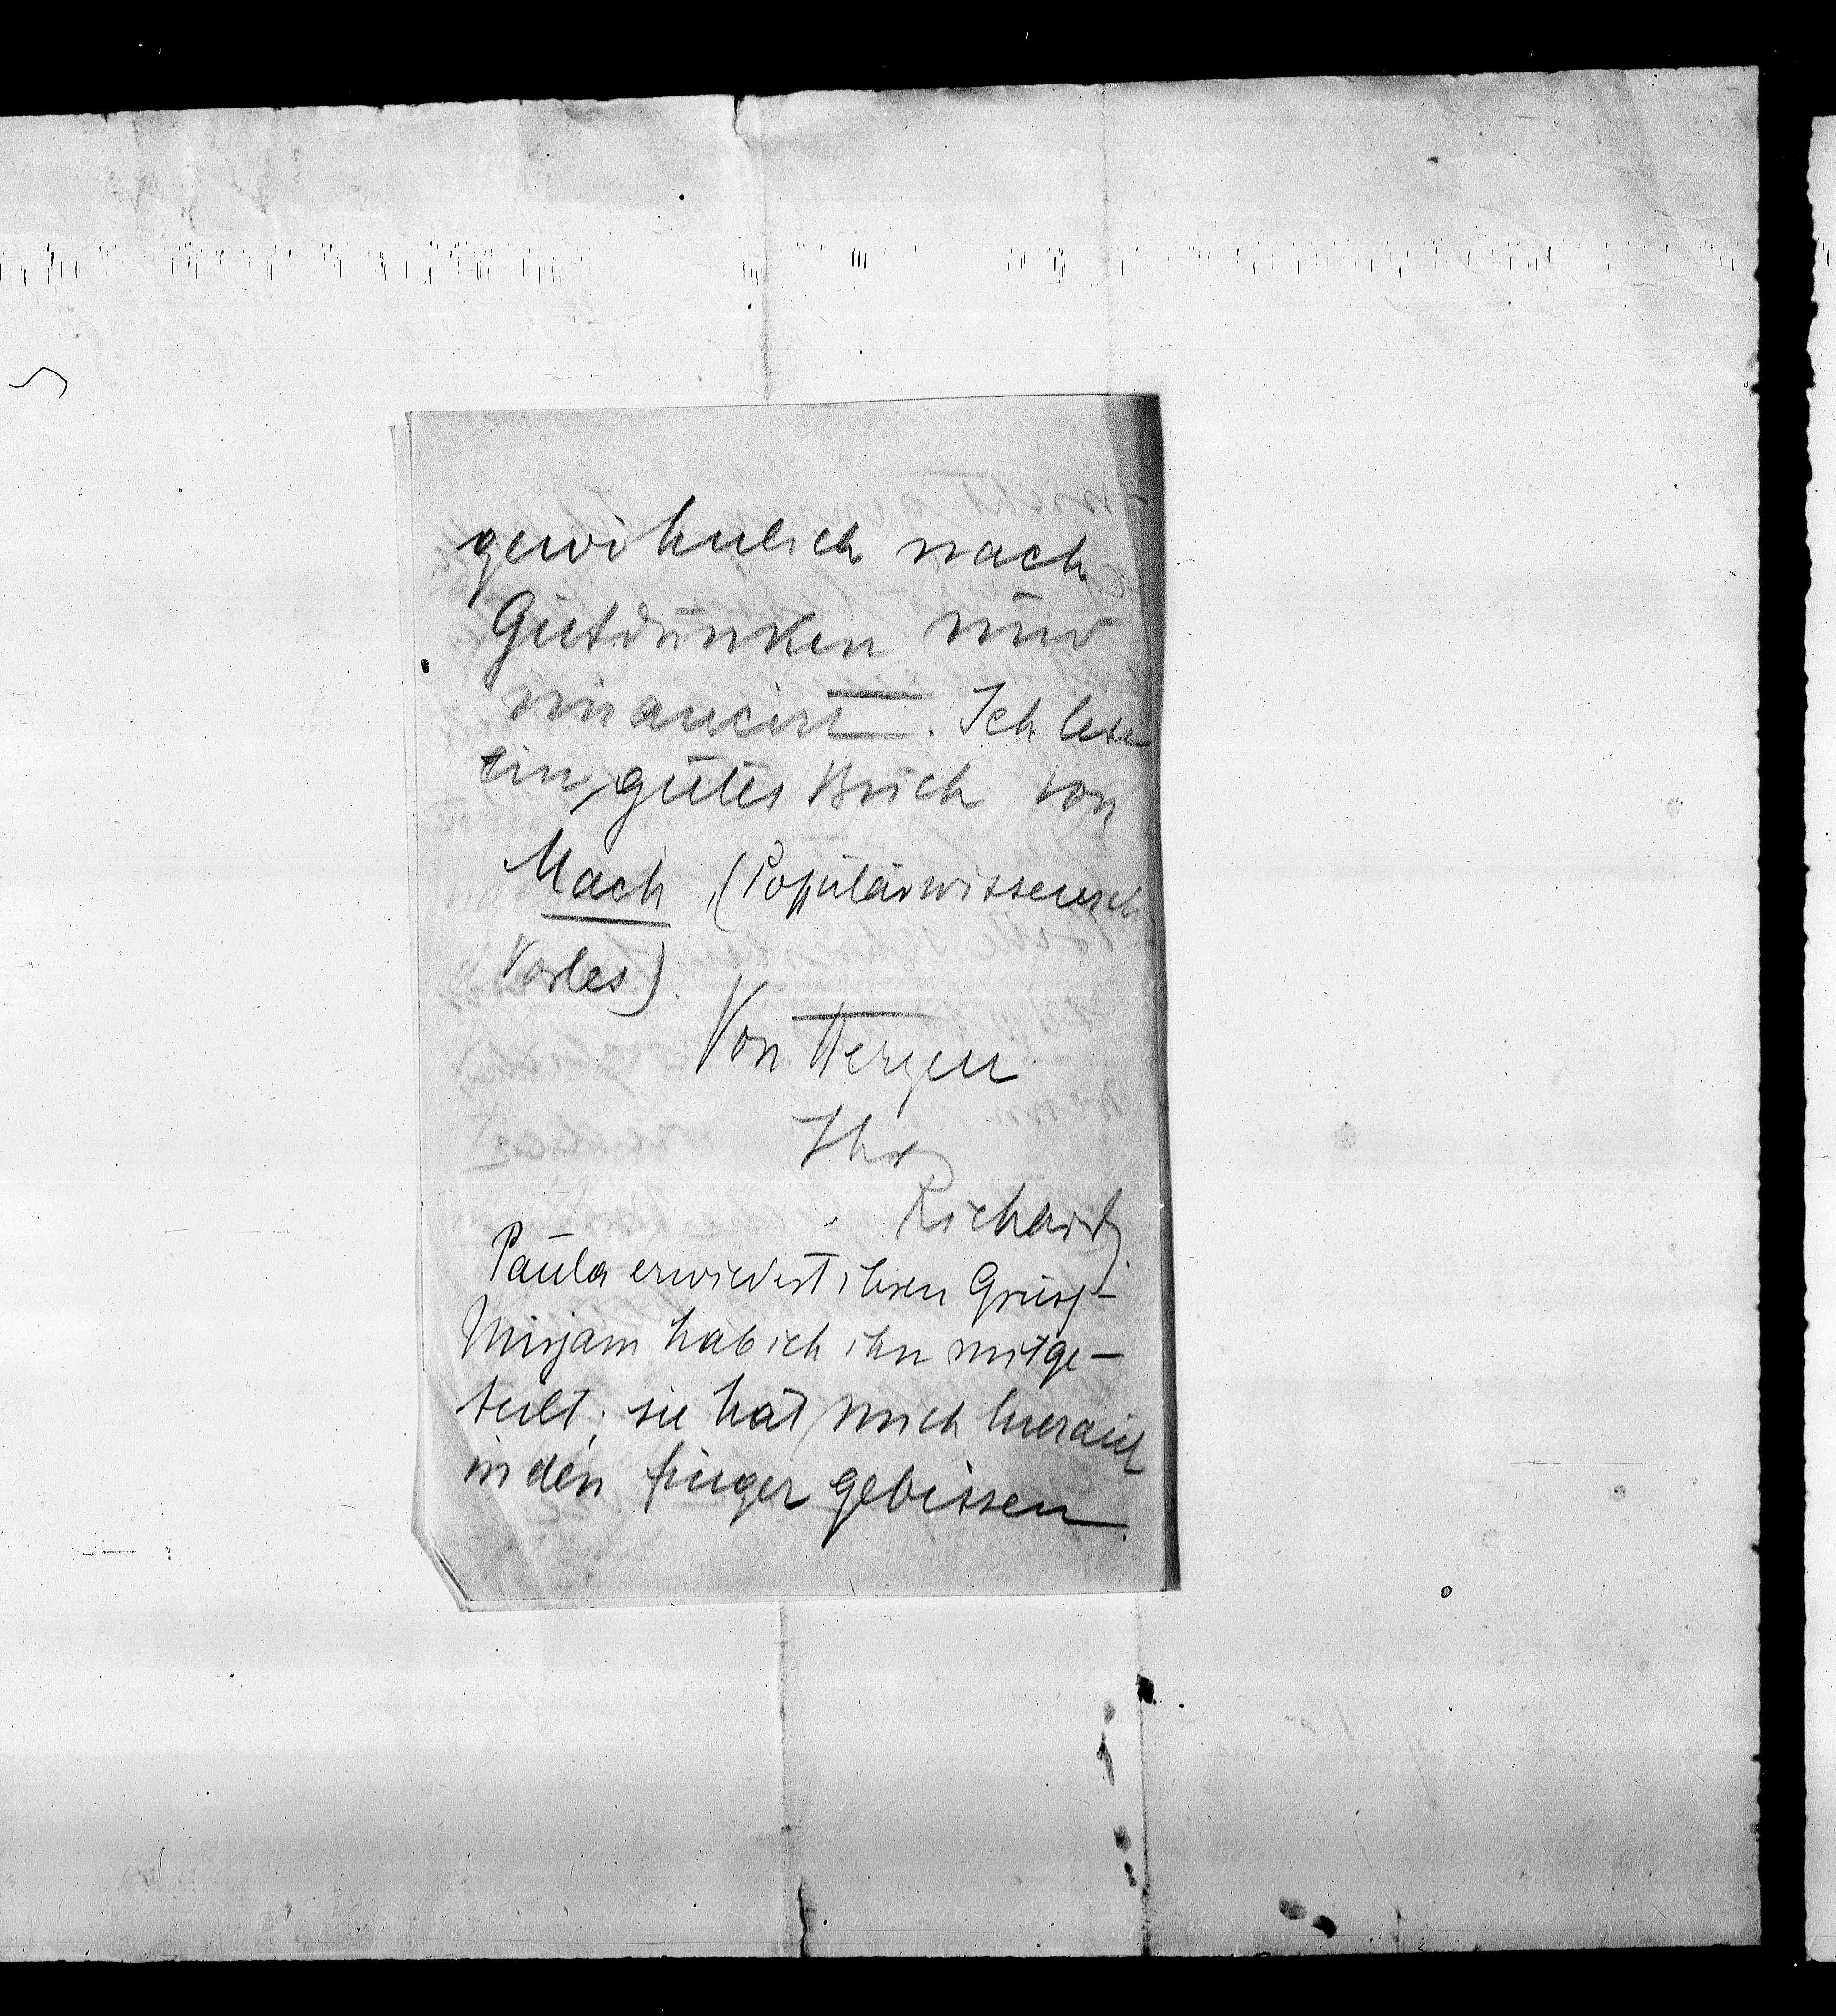 gewöhnlich nach
Gutdünken nur
nuancirt. Ich lese
ein gutes Buch von
Mach (Populärwissensch
Vorles).
Von Herzen
Ihr
Richard.
Paula erwidert ihren Gruß–
Mirjam hab ich ihn mitge-
teilt; sie hat mich hierauf
in den Finger gebissen.